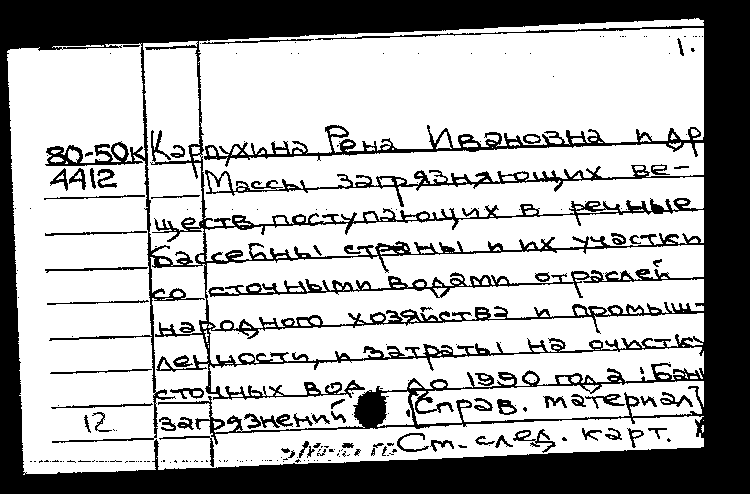 1.
80-50к Карпухина, Рена Ивановна и др
4412 Массы загрязняющих ве-
ществ, поступающих в речные
бассейны страны и их участки
со сточными водами отраслей
народного хозяйства и промыш-
ленности, и затраты на очистку
сточных вод до 1990 года : Бан
12 загрязнений . [Справ. материал]
См. след. карт.